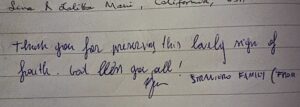 Lina & Lolitta Mani, California, USA
Thank you for preserving this lovely sign of
faith. God bless you all!
FAMILY (FROM